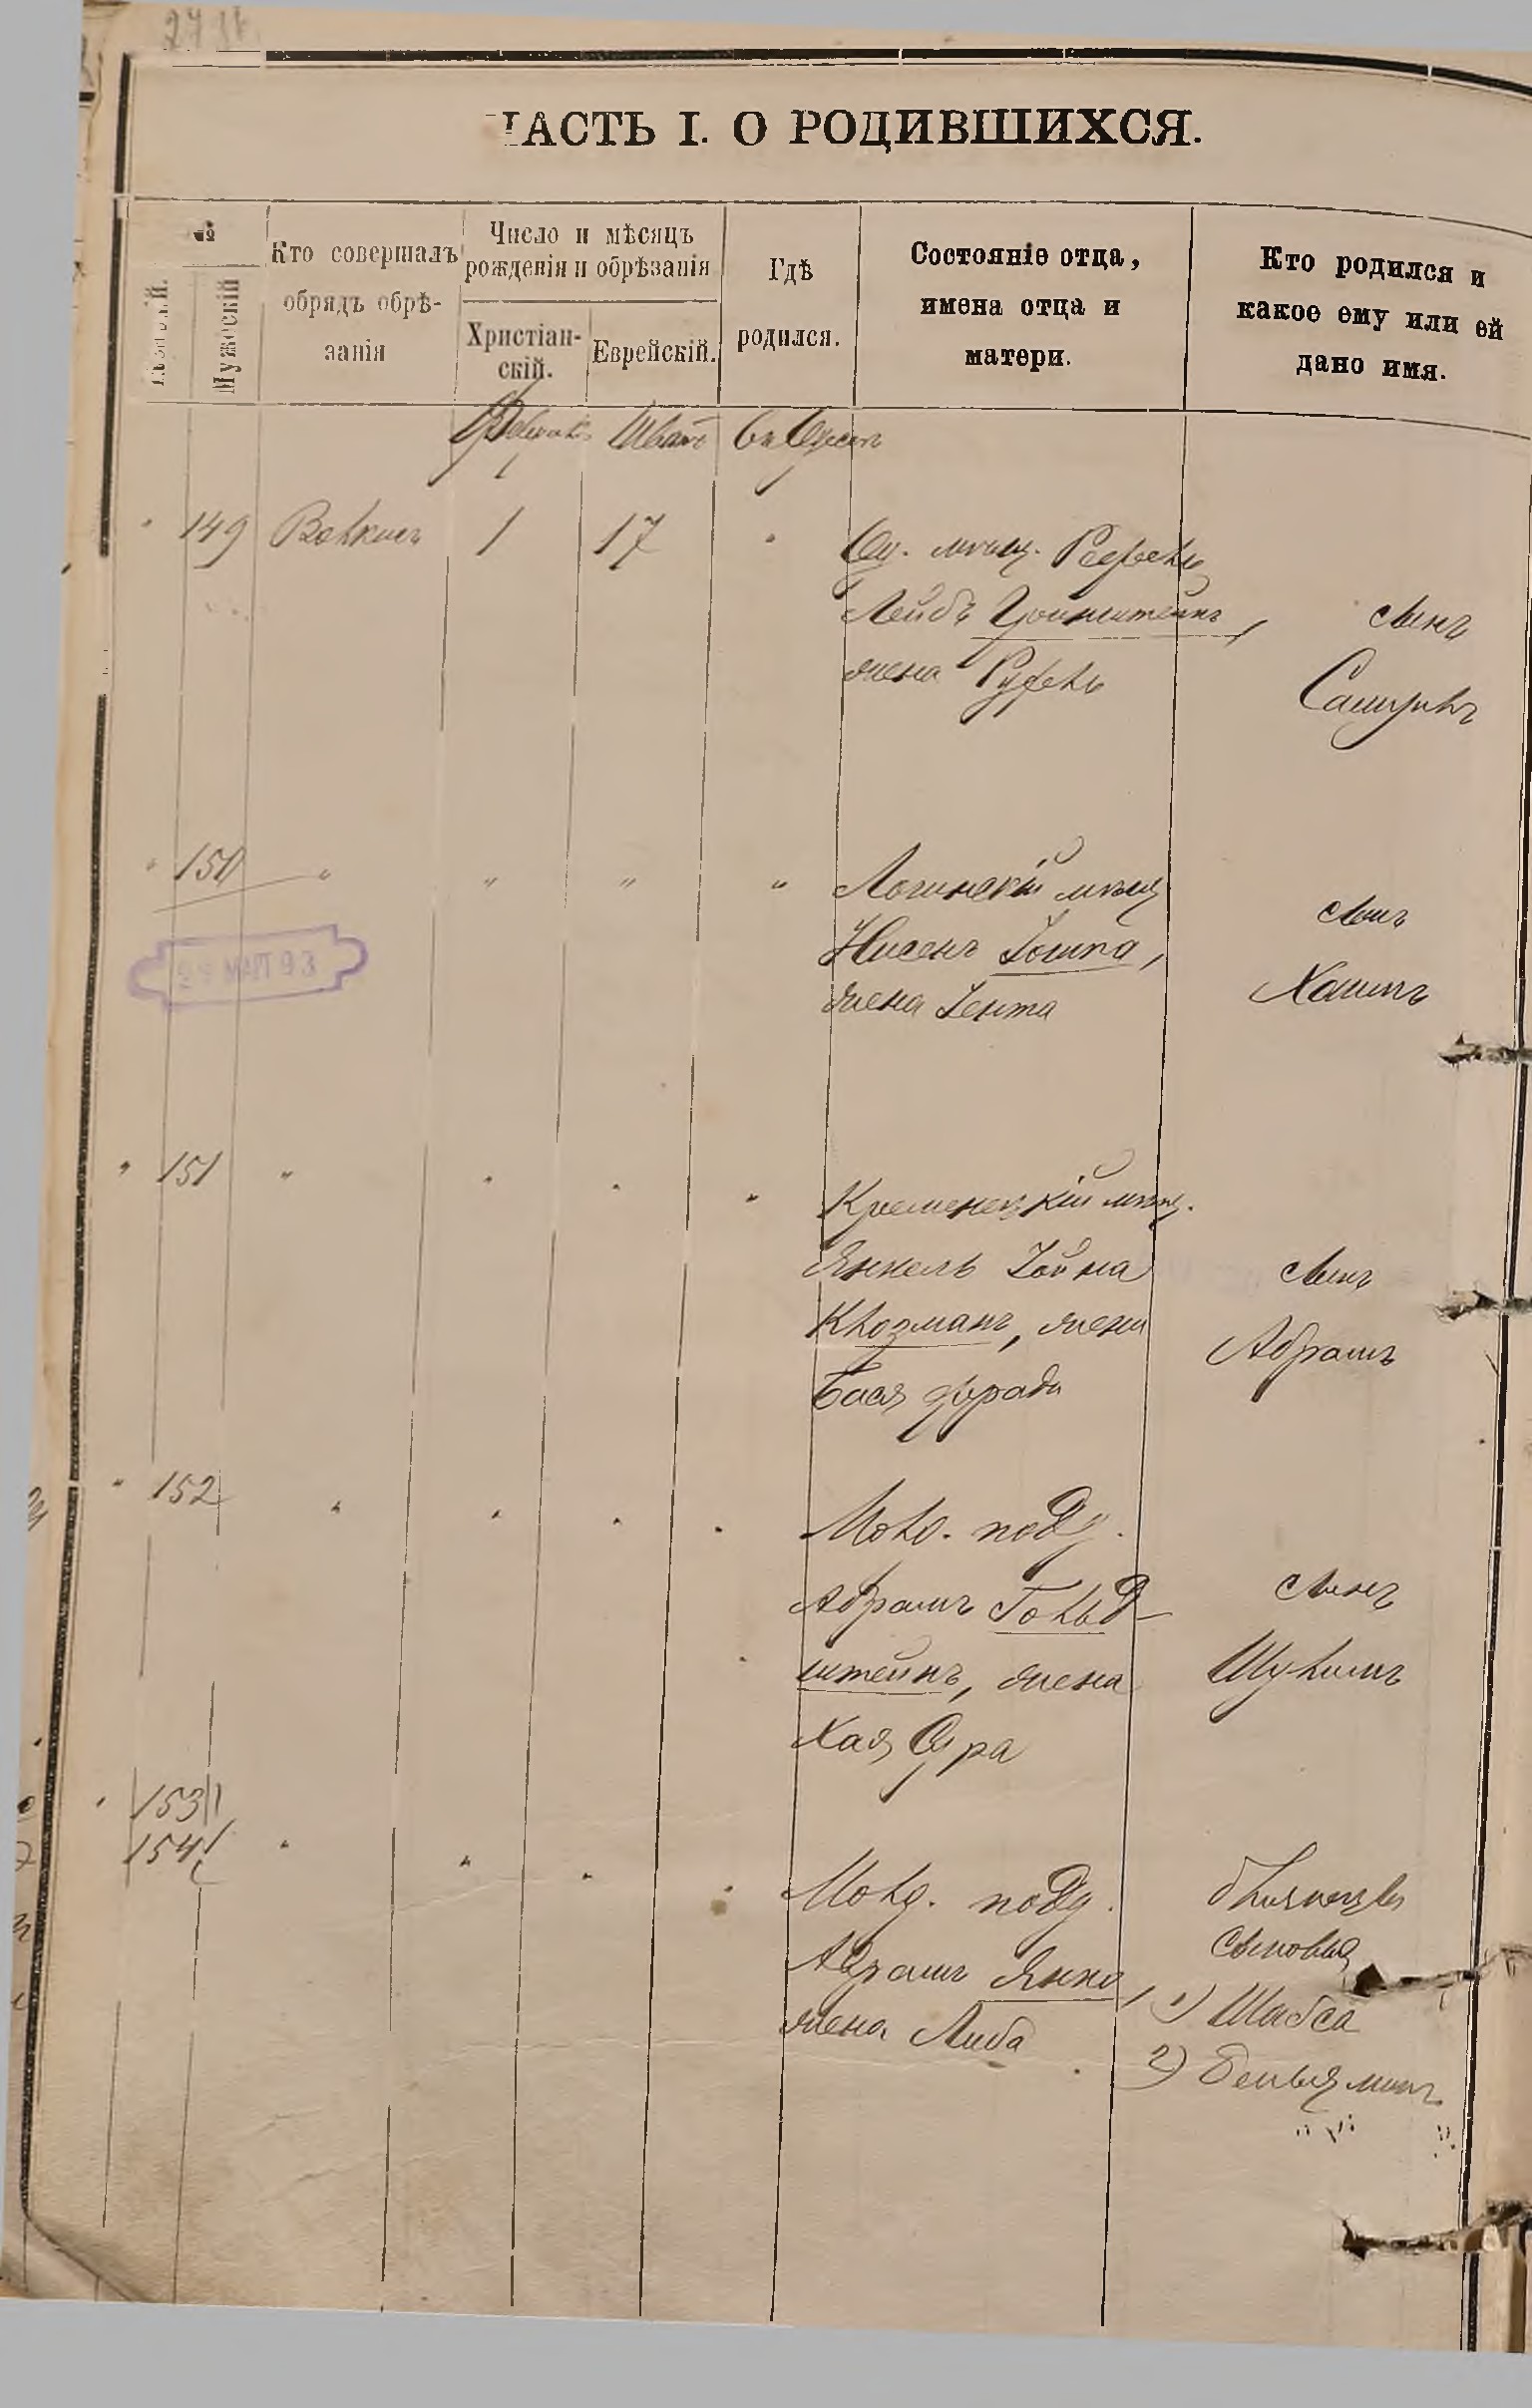 ЧАСТЬ I. О РОДИВШИХСЯ.
№
Женскій.
Мужескій
Кто совершалъ
обрядъ обрѣ-
занія
Число и мѣсяцъ
рожденія и обрѣзанія
Христіан-
скій.
Еврейскій.
Гдѣ
родился.
Состояніе отца,
имена отца и
матери.
Кто родился и
какое ему или ей
дано имя.
Февраль Шватъ въ Одессѣ
149 1 17 Од. мѣщ.
Лейбъ
жена
сынъ
Самуилъ
150 " " " " мѣщ
Нисенъ
жена Ента
сынъ
Хаимъ
29 МАП 93
151 " " " " Кременецкій мѣщ.
Янкель Іойна
Клозманъ, жена
Бася Фрада
сынъ
Абрамъ
152 " " " " Молд. подд.
Абрамъ Гольд-
штейнъ, жена
Хая Сура
сынъ
Шулимъ
153
154 " " " " Молд. подд.
Абрамъ Янко,
жена Либа
близнецы
сыновья
1) Шабса
2) Беньяминъ